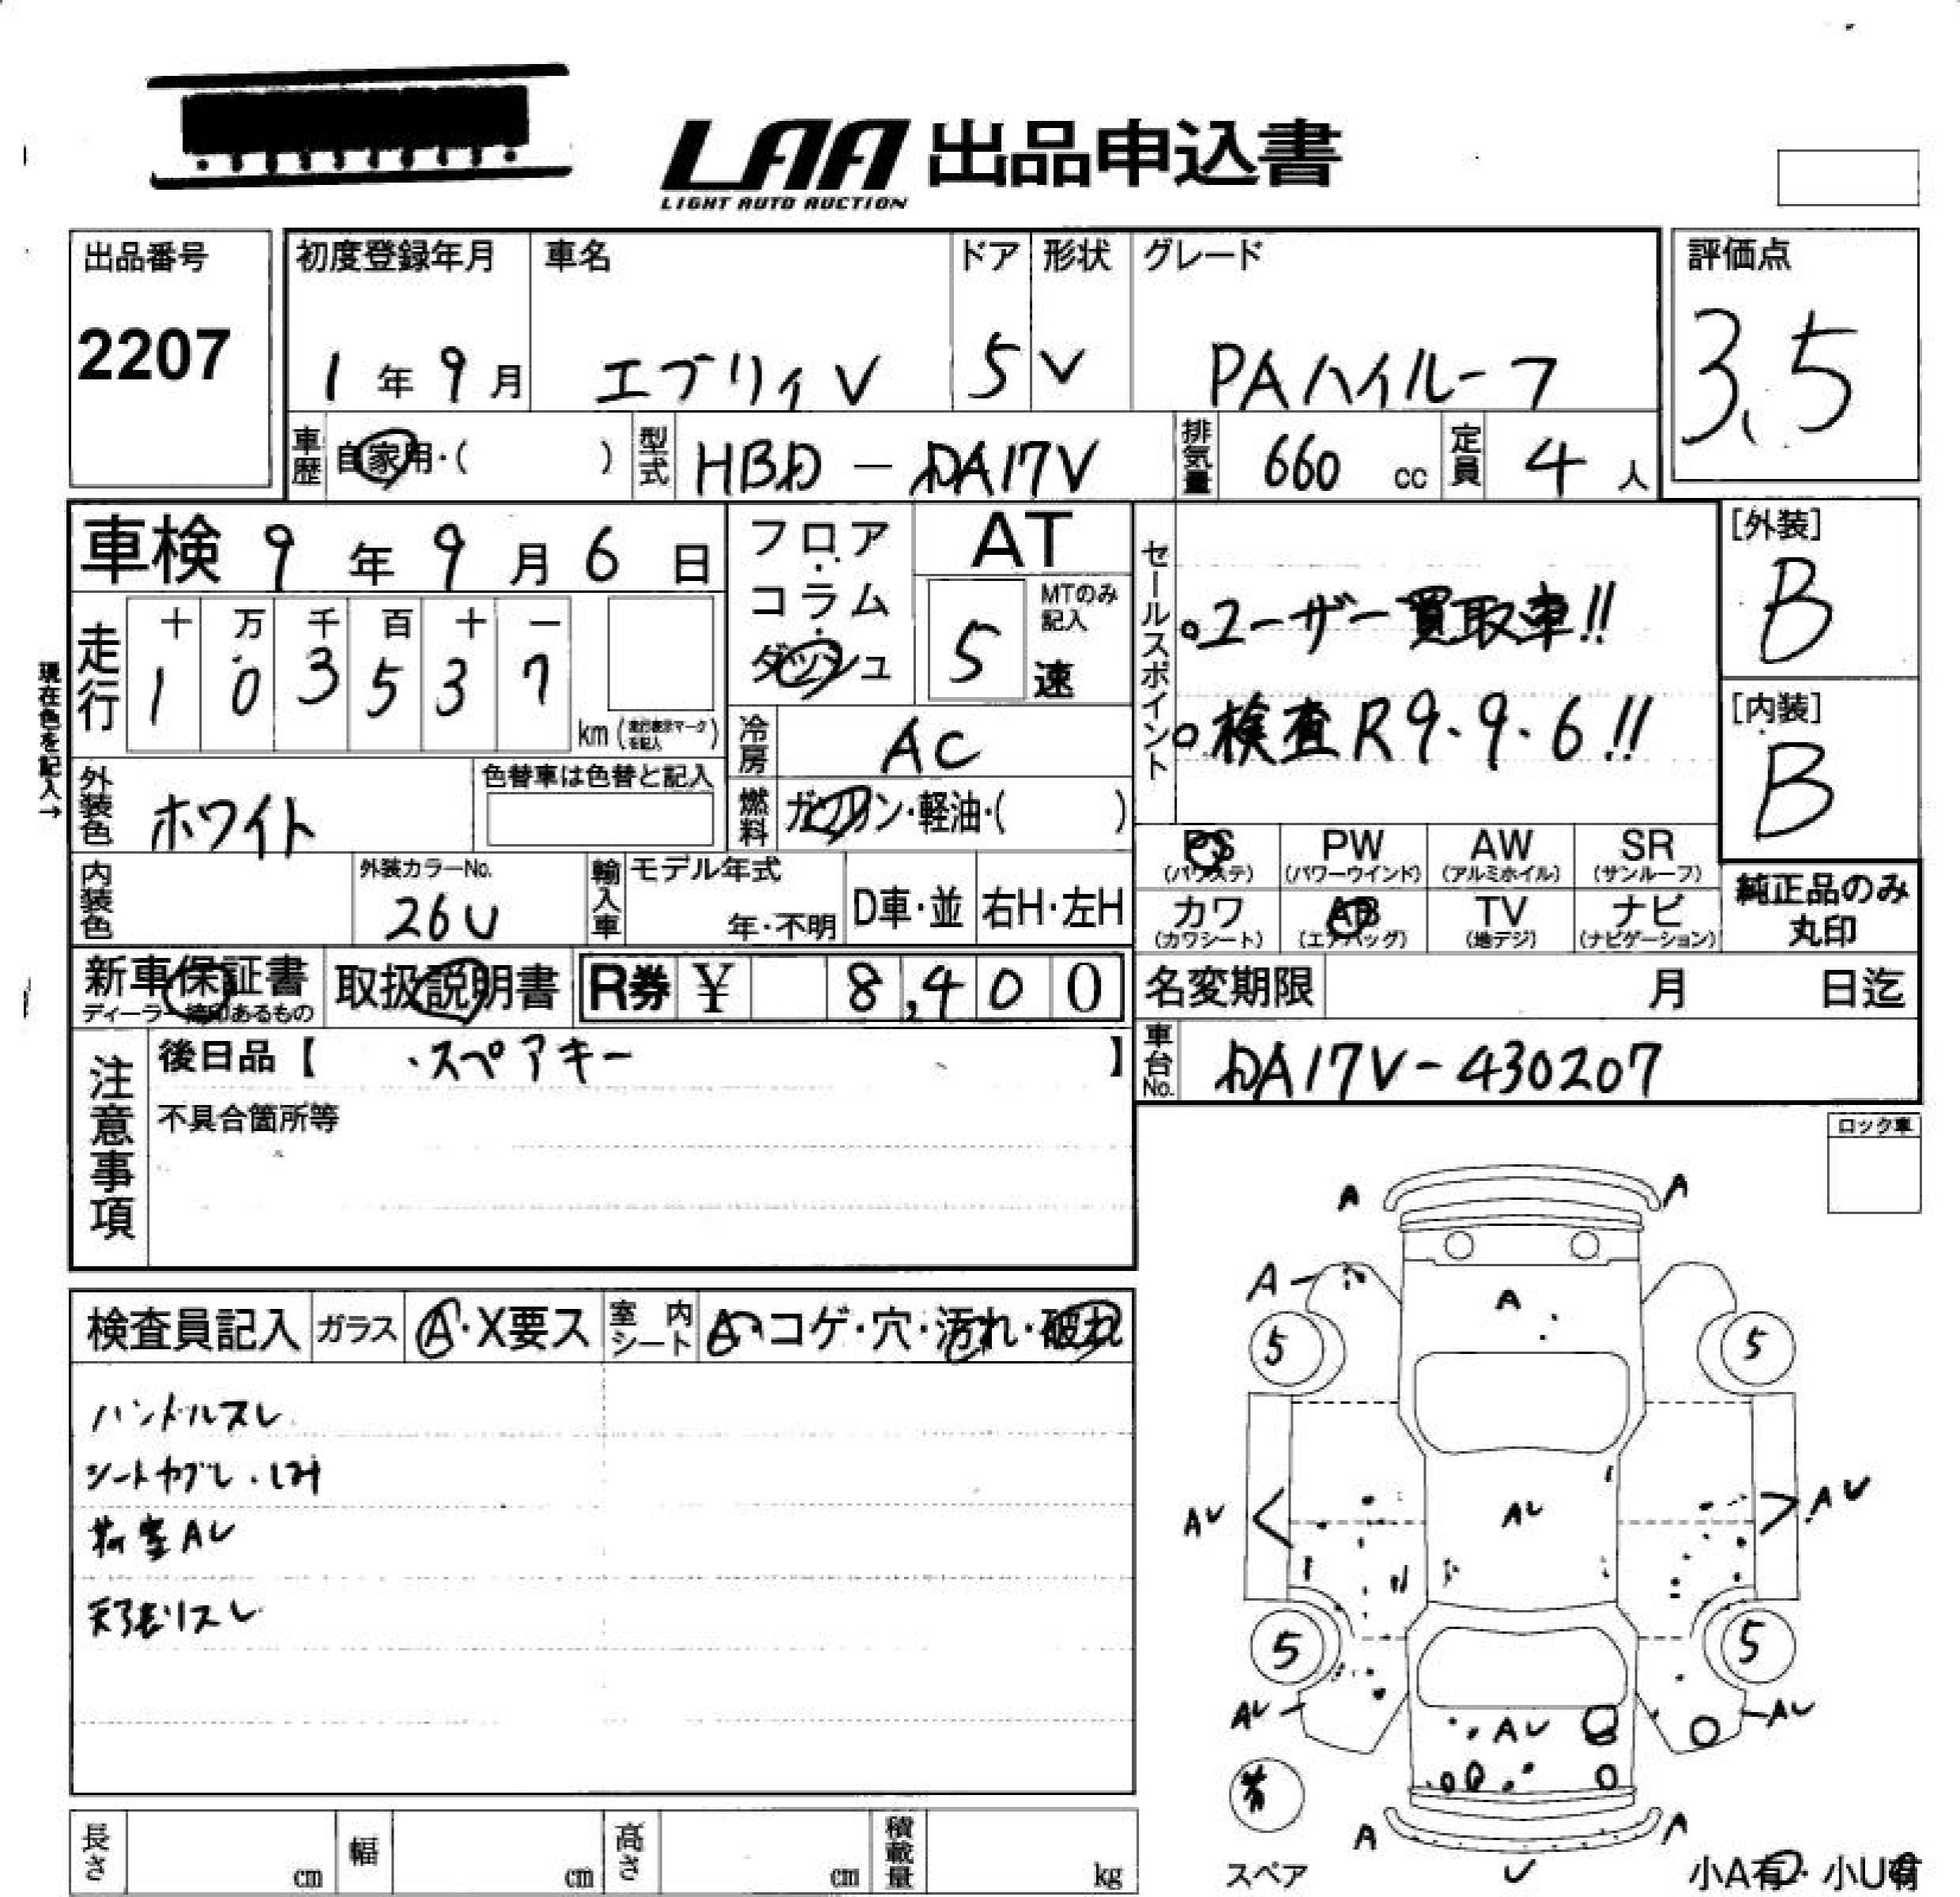 LAA 出品申込書
LIGHT AUTO AUCTION
出品番号
2207
初度登録年月
1年9月
車名
エブリィV
ドア
5
形状
V
グレード
PAハイルーフ
評価点
3.5
車歴
自家用・( )
型式
HBD - DA17V
排気量
660 cc
定員
4人
車検 9年9月6日
フロア・コラム・ダッシュ
AT
MTのみ記入
5速
セールスポイント
ユーザー買取車!!
検査R9・9・6!!
[外装]
B
[内装]
B
現在色を記入→
走行
十 万 千 百 十 一
1 0 3 5 3 7
km
冷房
AC
外装色
ホワイト
色替車は色替と記入
燃料
ガソリン・軽油・( )
内装色
外装カラーNo.
26U
輸入車
モデル年式
年・不明
D車・並
右H・左H
PS
(パワステ)
PW
(パワーウインド)
AW
(アルミホイル)
SR
(サンルーフ)
カワ
(カワシート)
AB
(エアバッグ)
TV
(地デジ)
ナビ
(ナビゲーション)
純正品のみ
丸印
新車保証書
ディーラー捺印あるもの
取扱説明書
R券 ¥ 8,400
名変期限 月 日迄
注意事項
後日品【 ・スペアキー 】
不具合箇所等
車台No.
DA17V-430207
ロック車
検査員記入
ガラス
A・X要ス
室内シート
A・コゲ・穴・汚れ・破れ
ハンドルスレ
シートヤブレ・しみ
荷室AU
天張リスレ
A A
A A
5 5
AU AU AU
5 5
AU AU AU
有
スペア
A A
U
小A有・小U有
長さ cm
幅 cm
高さ cm
積載量 kg